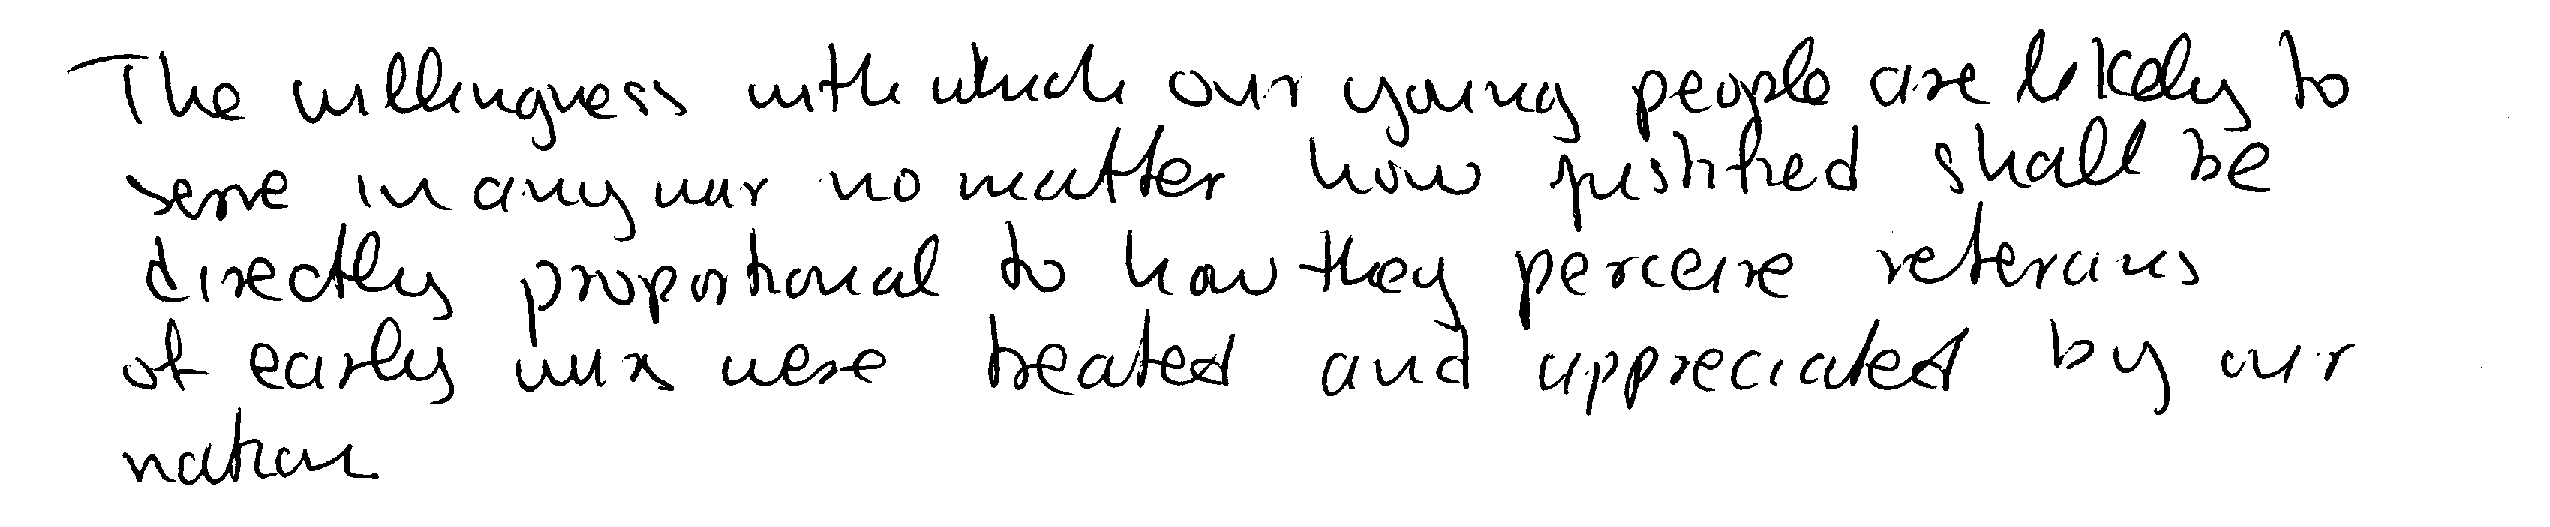 The willingness with which our young people are likely to
serve in any war no matter how justified shall be
directly proportional to how they perceive veterans
of early wars were treated and appreciated by our
nation